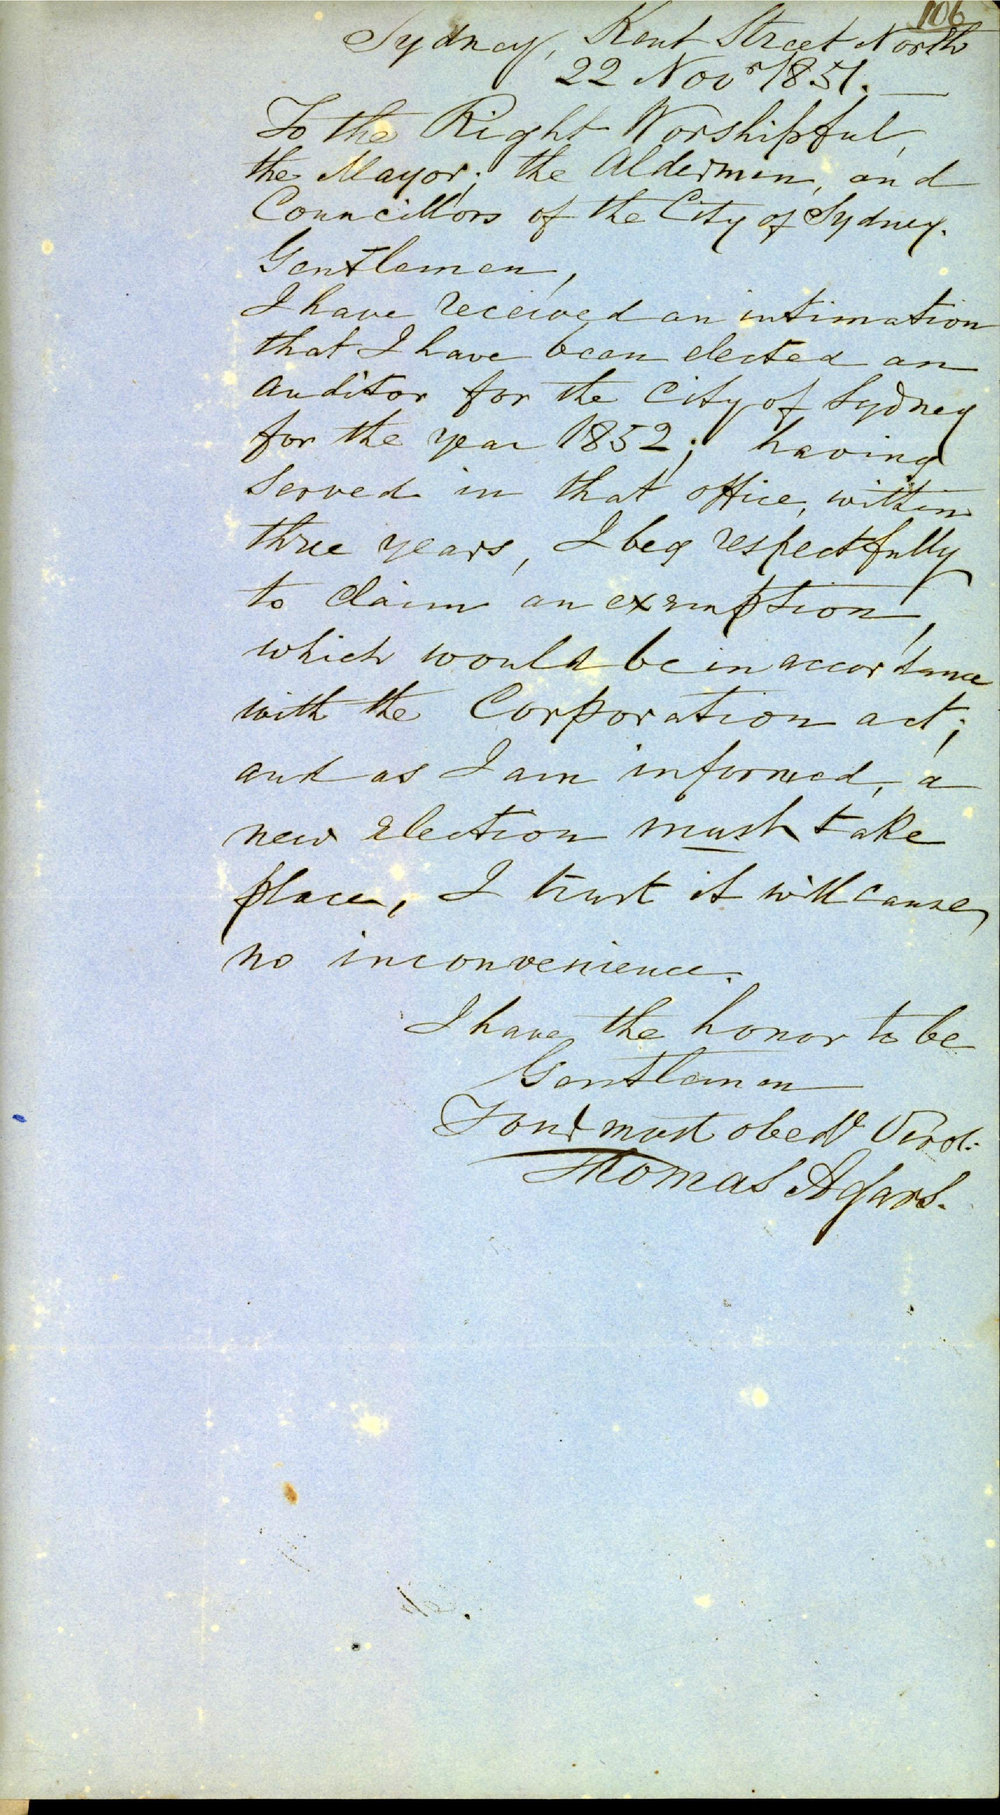 106
Sydney, Kent Street North
22 Novr 1851.
To the Right Worshipful,
the Mayor; the Aldermen, and
Councillors of the City of Sydney.
Gentlemen,
I have received an intimation
that I have been elected an
auditor for the City of Sydney
for the year 1852; having
served in that office, within
three years, I beg respectfully
to claim an exemption,
which would be in accordance
with the Corporation act;
and as I am informed, a
new election must take
place, I trust it will cause
no inconvenience.
I have the honor to be
Gentlemen
Your most obedt Servt
Thomas Agars.